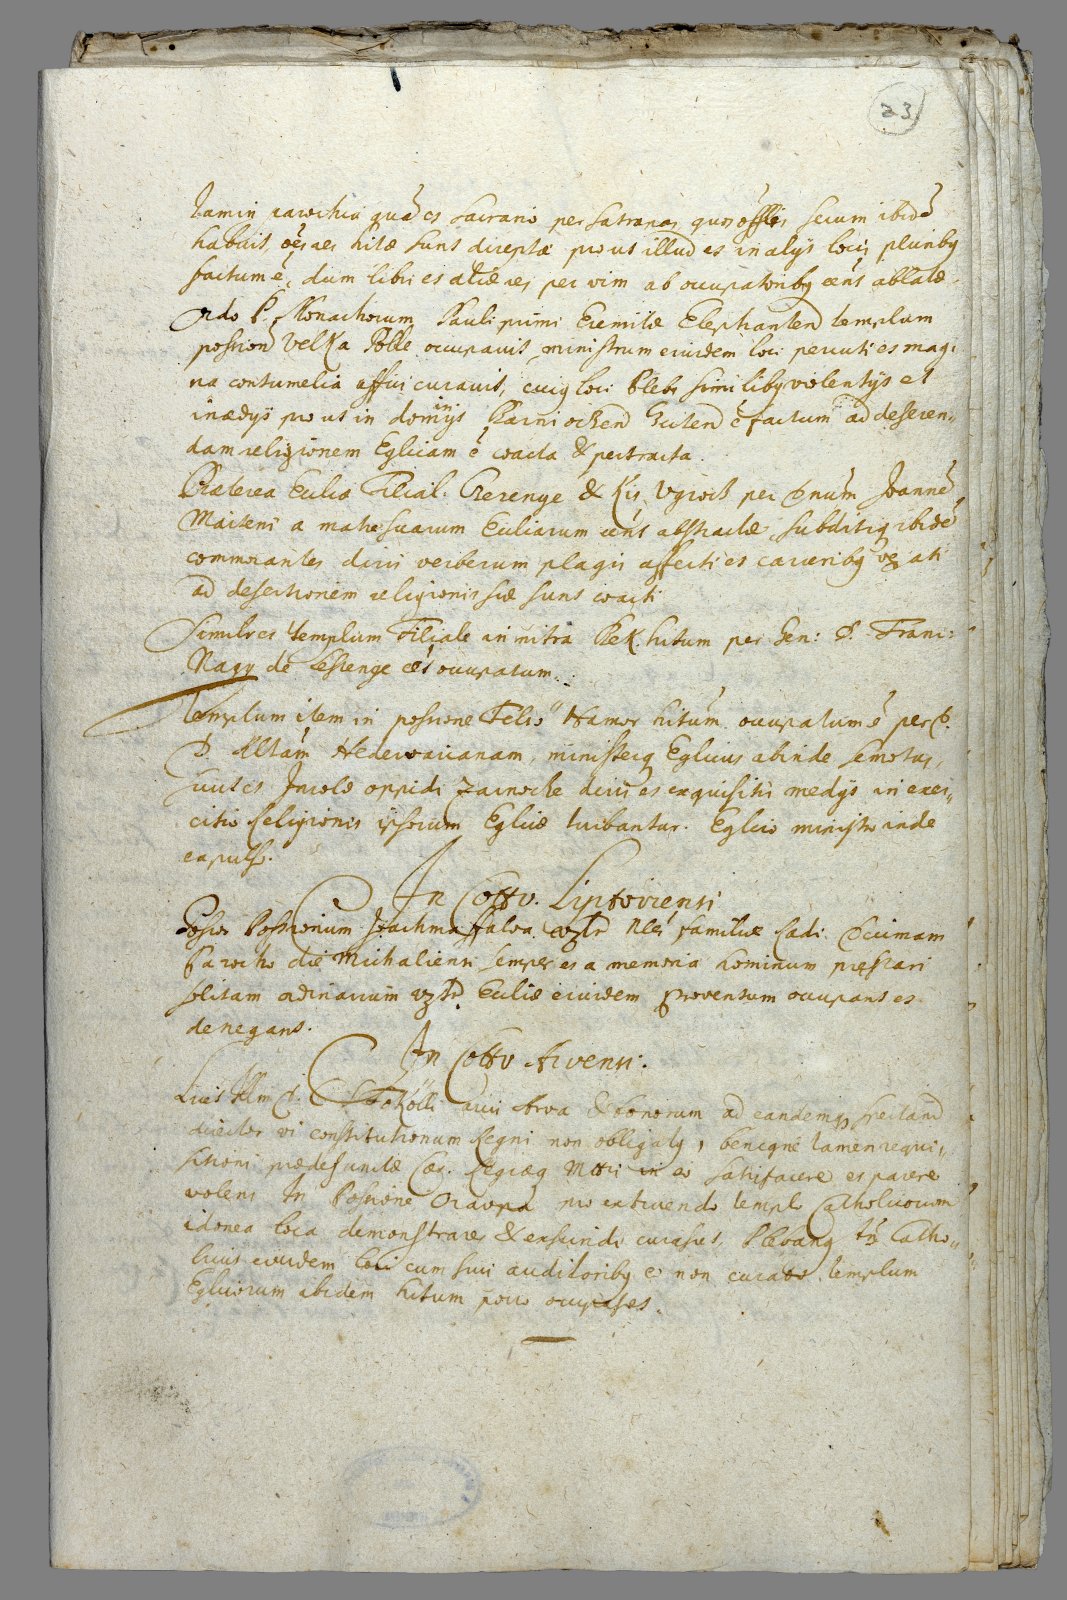 23
Jam in parochia quā et sacrario per satrapas quos
habuit oēs res hitæ sunt direptæ prout illud et in alijs locis pluribq
factum ē, dum libri et aliæ res per vim ab occupatoribq cēnt ablatæ
Ordo P. Monachorum Pauli primi Eremitæ Elephanten templum
possion Velka Polle occupavit, ministrum eiusdem loci percuti et mag:
na contumelia affici curavit, cuiq loci Plebs similibq violentijs et
inædys prout in dominijs ē factum ad deseren:
dam religionem Eglicam ē coacta & pertracta.
Præterea Eccliæ Filial. Cserenye & Kis Ugrocz per Dnūm Joannē
Majteni a matre suarum Eccliarum cēnt abstractæ, subditiq ibidē
commorantes diris verberum plagis affecti et carceribq vexati
ad desertionem religionis suæ sunt coacti
Simil et templum Filiale in nitra Pek hitum per Gen: D. Franc:
Nagy de Lessenye occupatum.
Templum item in possione Felsö Hamor hitum occupatum ē per
D. Hedervarianam, ministerq Eglicus abinde semotus,
sicut et Incolæ oppidi Zarnocze diris et exquisitis medijs in exer,,
citio Religionis ipsorum Eglicæ turbantur. Eglico ministro inde
expulso.
In Cottu. Liptoviensi
Possor Possionum Joachimsffalva familiæ Kadi Decimam
Parocho diē Michaliensi semper et a memoria hominum præstari
solitam ordinarium Eccliæ eiusdem proventum occupant et
denegant.
In Cottu Arvensi.
Licet Illm D. C. S. Tököli arcis Arva & bonorum ad eandem spectand
director vi constitutionum Regni non obligatq, benignè tamen requi,,
sitioni prædefunctæ Cæs. Regiæq Mtti in eo satisfacere et parere
volens In Possione Oravka pro extruendo templo Catholicorum
idonea loca demonstrare & exscindi curasset, Plebanq tn Catho,,
licus eiusdem loci cum suis auditoribq eo non curato templum
Eglicorum abidem hitum porro occupasset.